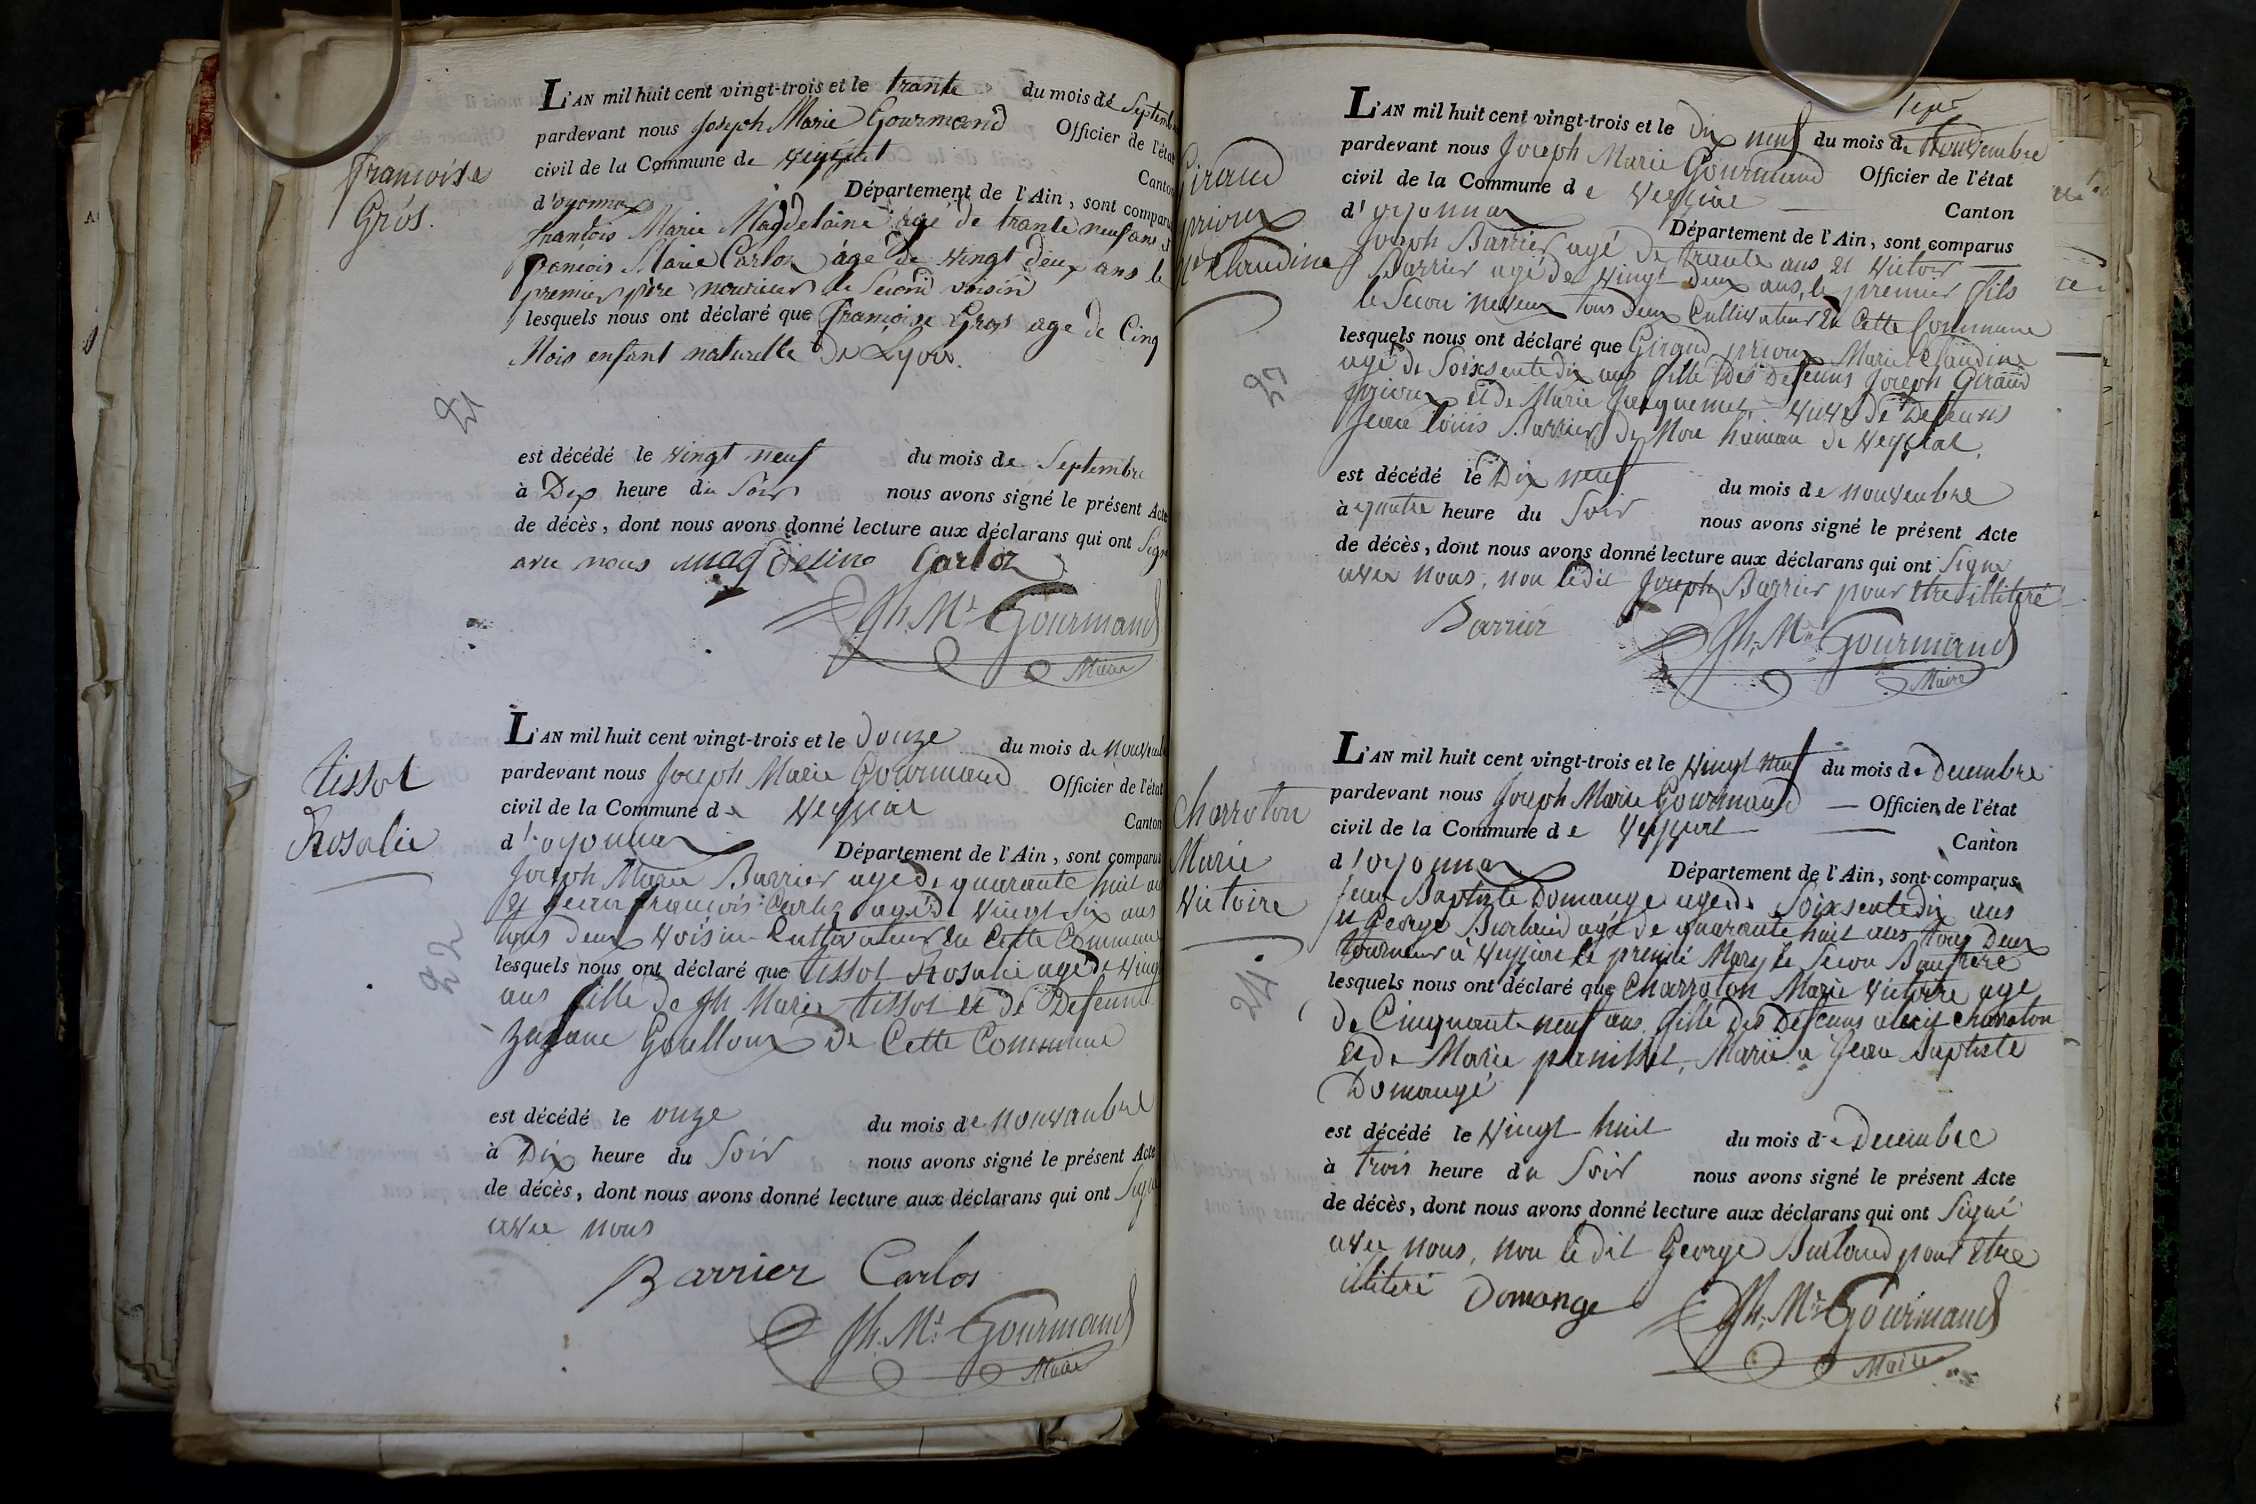 françoise
Gros.
21
L'AN mil huit cent vingt-trois et le trante du mois de Septembre
pardevant nous Joseph Marie Gourmand Officier de l'état
civil de la Commune de veyziat Canton
d'oyonnax Département de l'Ain, sont comparus
françois Marie Magdelaine âgé de trante neuf ans et
françois Marie Carloz âgé de vingt deux ans le
premier père nouricier le Second voisin
lesquels nous ont déclaré que françoise Gros age de Cinq
Mois enfant naturelle de Lyon.
est décédé le vingt neuf du mois de Septembre
à Dix heure du Soir nous avons signé le présent Acte
de décès, dont nous avons donné lecture aux déclarans qui ont Signé
avec nous magdelino Carloz
Jh. Mie Gourmand
Maire
tissot
Rosalie
22
L'AN mil huit cent vingt-trois et le Douze du mois de nouvembre
pardevant nous Joseph Marie Gourmand Officier de l'état
civil de la Commune de Veyziat Canton
d'oyonnax Département de l'Ain, sont comparus
Joseph Marie Barrier agé de quarante huit ans
et Jean françois Carloz agé de vingt Six ans
tous deux voisin Cultivateur en Cette Commune
lesquels nous ont déclaré que tissot Rosalie agé de vingt
ans fille de Jh Marie tissot et de Defeunte
Zuzane Goulloux de Cette Commune
est décédé le onze du mois de nouvanbre
à Dix heure du Soir nous avons signé le présent Acte
de décès, dont nous avons donné lecture aux déclarans qui ont Signé
avec nous
Barrier Carlos
Jh. Mie Gourmand
Maire
Giraud
prioux
Mie Claudine
23
L'AN mil huit cent vingt-trois et le Dix neuf du mois de Nouvembre
pardevant nous Joseph Marie Gourmand Officier de l'état
civil de la Commune de Veyziat Canton
d'oyonnax Département de l'Ain, sont comparus
Joseph Barrier agé de trante ans et Victoir
Barrier agé de vingt Deux ans, le premier fils
le Secon neveux tous Deux Cultivateur en Cette Commune
lesquels nous ont déclaré que Giraud prioux Marie Claudine
agé de Soixsente dix ans fille des Defeuns Joseph Giraud
prioux et de Marie Jacquemet, vuve de Defeuns
Jean Louis Barrier de Mon hameau de Veyziat.
est décédé le Dix neuf du mois de nouvenbre
à quatre heure du Soir nous avons signé le présent Acte
de décès, dont nous avons donné lecture aux déclarans qui ont Signé
avec nous, non ledit Joseph Barrier pour être illiteré
Barrier
Jh. Mie Gourmand
Maire
Charroton
Marie
Victoire
24
L'AN mil huit cent vingt-trois et le vingt neuf du mois de Decembre
pardevant nous Joseph Marie Gourmand Officier de l'état
civil de la Commune de Veyziat Canton
d'oyonnax Département de l'Ain, sont comparus
Jean Baptiste Domange agé de Soixsente dix ans
et George Burlaud agé de quarante huit ans tous Deux
tourneur à Veyziat le premié Mary le Secon Baufrere
lesquels nous ont déclaré que Charroton Marie Victoire age
de Cinquante neuf ans fille des Defeuns alexis Charroton
et de Marie panisset, Marié a Jean Baptiste
Domange
est décédé le vingt huit du mois de Decembre
à trois heure du Soir nous avons signé le présent Acte
de décès, dont nous avons donné lecture aux déclarans qui ont Signé
avec nous, non ledit George Burlaud pour être
illiteré Domange
Jh. Mie Gourmand
Maire